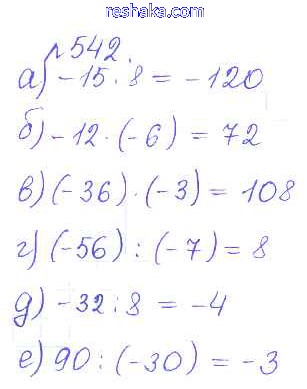 reshaka.com
№542.
а) -15 · 8 = -120
б) -12 · (-6) = 72
в) (-36) · (-3) = 108
г) (-56) : (-7) = 8
д) -32 : 8 = -4
е) 90 : (-30) = -3